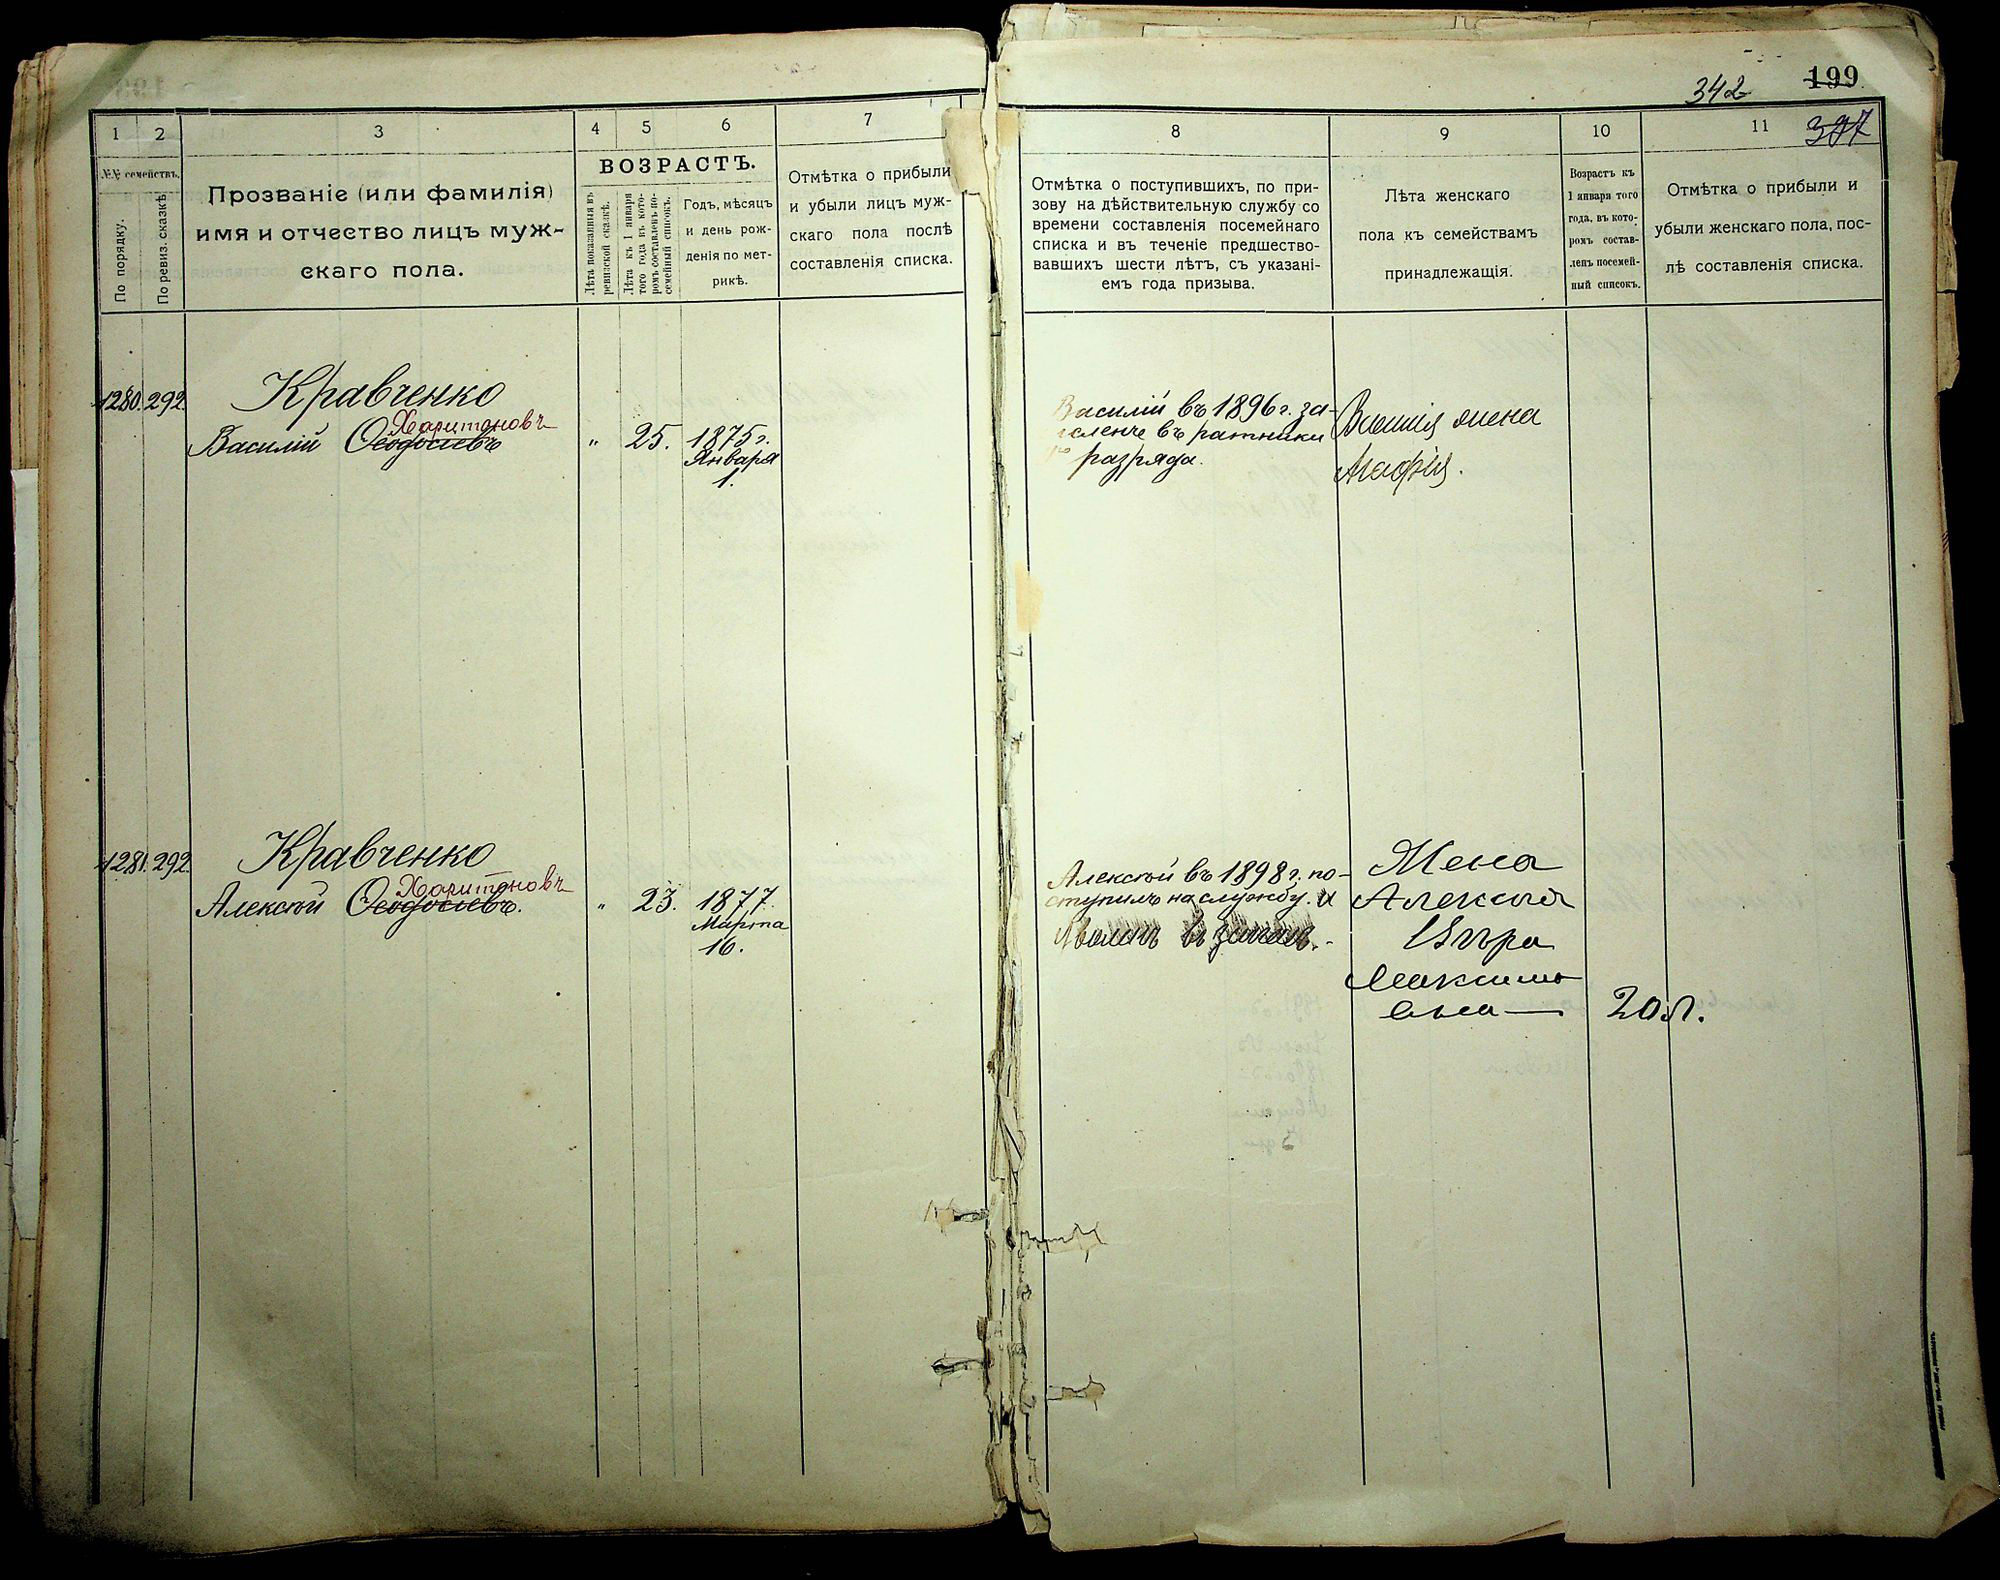 342 199
397
1 2 3 4 5 6 7
№№ семействъ.
По порядку.
По ревиз. сказкѣ.
Прозваніе (или фамилія)
имя и отчество лицъ муж-
скаго пола.
ВОЗРАСТЪ.
Лѣта показанныя въ
ревизской сказкѣ.
Лѣта къ 1 января
того года въ кото-
ромъ составленъ по-
семейный списокъ.
Годъ, мѣсяцъ
и день рож-
денія по мет-
рикѣ.
Отмѣтка о прибыли
и убыли лицъ муж-
скаго пола послѣ
составленія списка.
8 9 10 11
Отмѣтка о поступившихъ, по при-
зову на дѣйствительную службу со
времени составленія посемейнаго
списка и въ теченіе предшество-
вавшихъ шести лѣтъ, съ указані-
емъ года призыва.
Лѣта женскаго
пола къ семействамъ
принадлежащія.
Возрастъ къ
1 января того
года, въ кото-
ромъ состав-
ленъ посемей-
ный списокъ.
Отмѣтка о прибыли и
убыли женскаго пола, пос-
лѣ составленія списка.
1280. 292. Кравченко
Харитоновъ
Василій Ѳеодосіевъ „ 25. 1875 г.
Января
1.
Василій въ 1896 г. за-
численъ въ ратники
разряда.
Василія жена
Агафія.
1281. 292. Кравченко
Харитоновъ
Алексѣй Ѳеодосіевъ. „ 23. 1877.
Марта
16.
Алексѣй въ 1898 г. по-
ступилъ на службу. и
Жена
Алексѣя
Вѣра
Максимо
вна — 20 л.